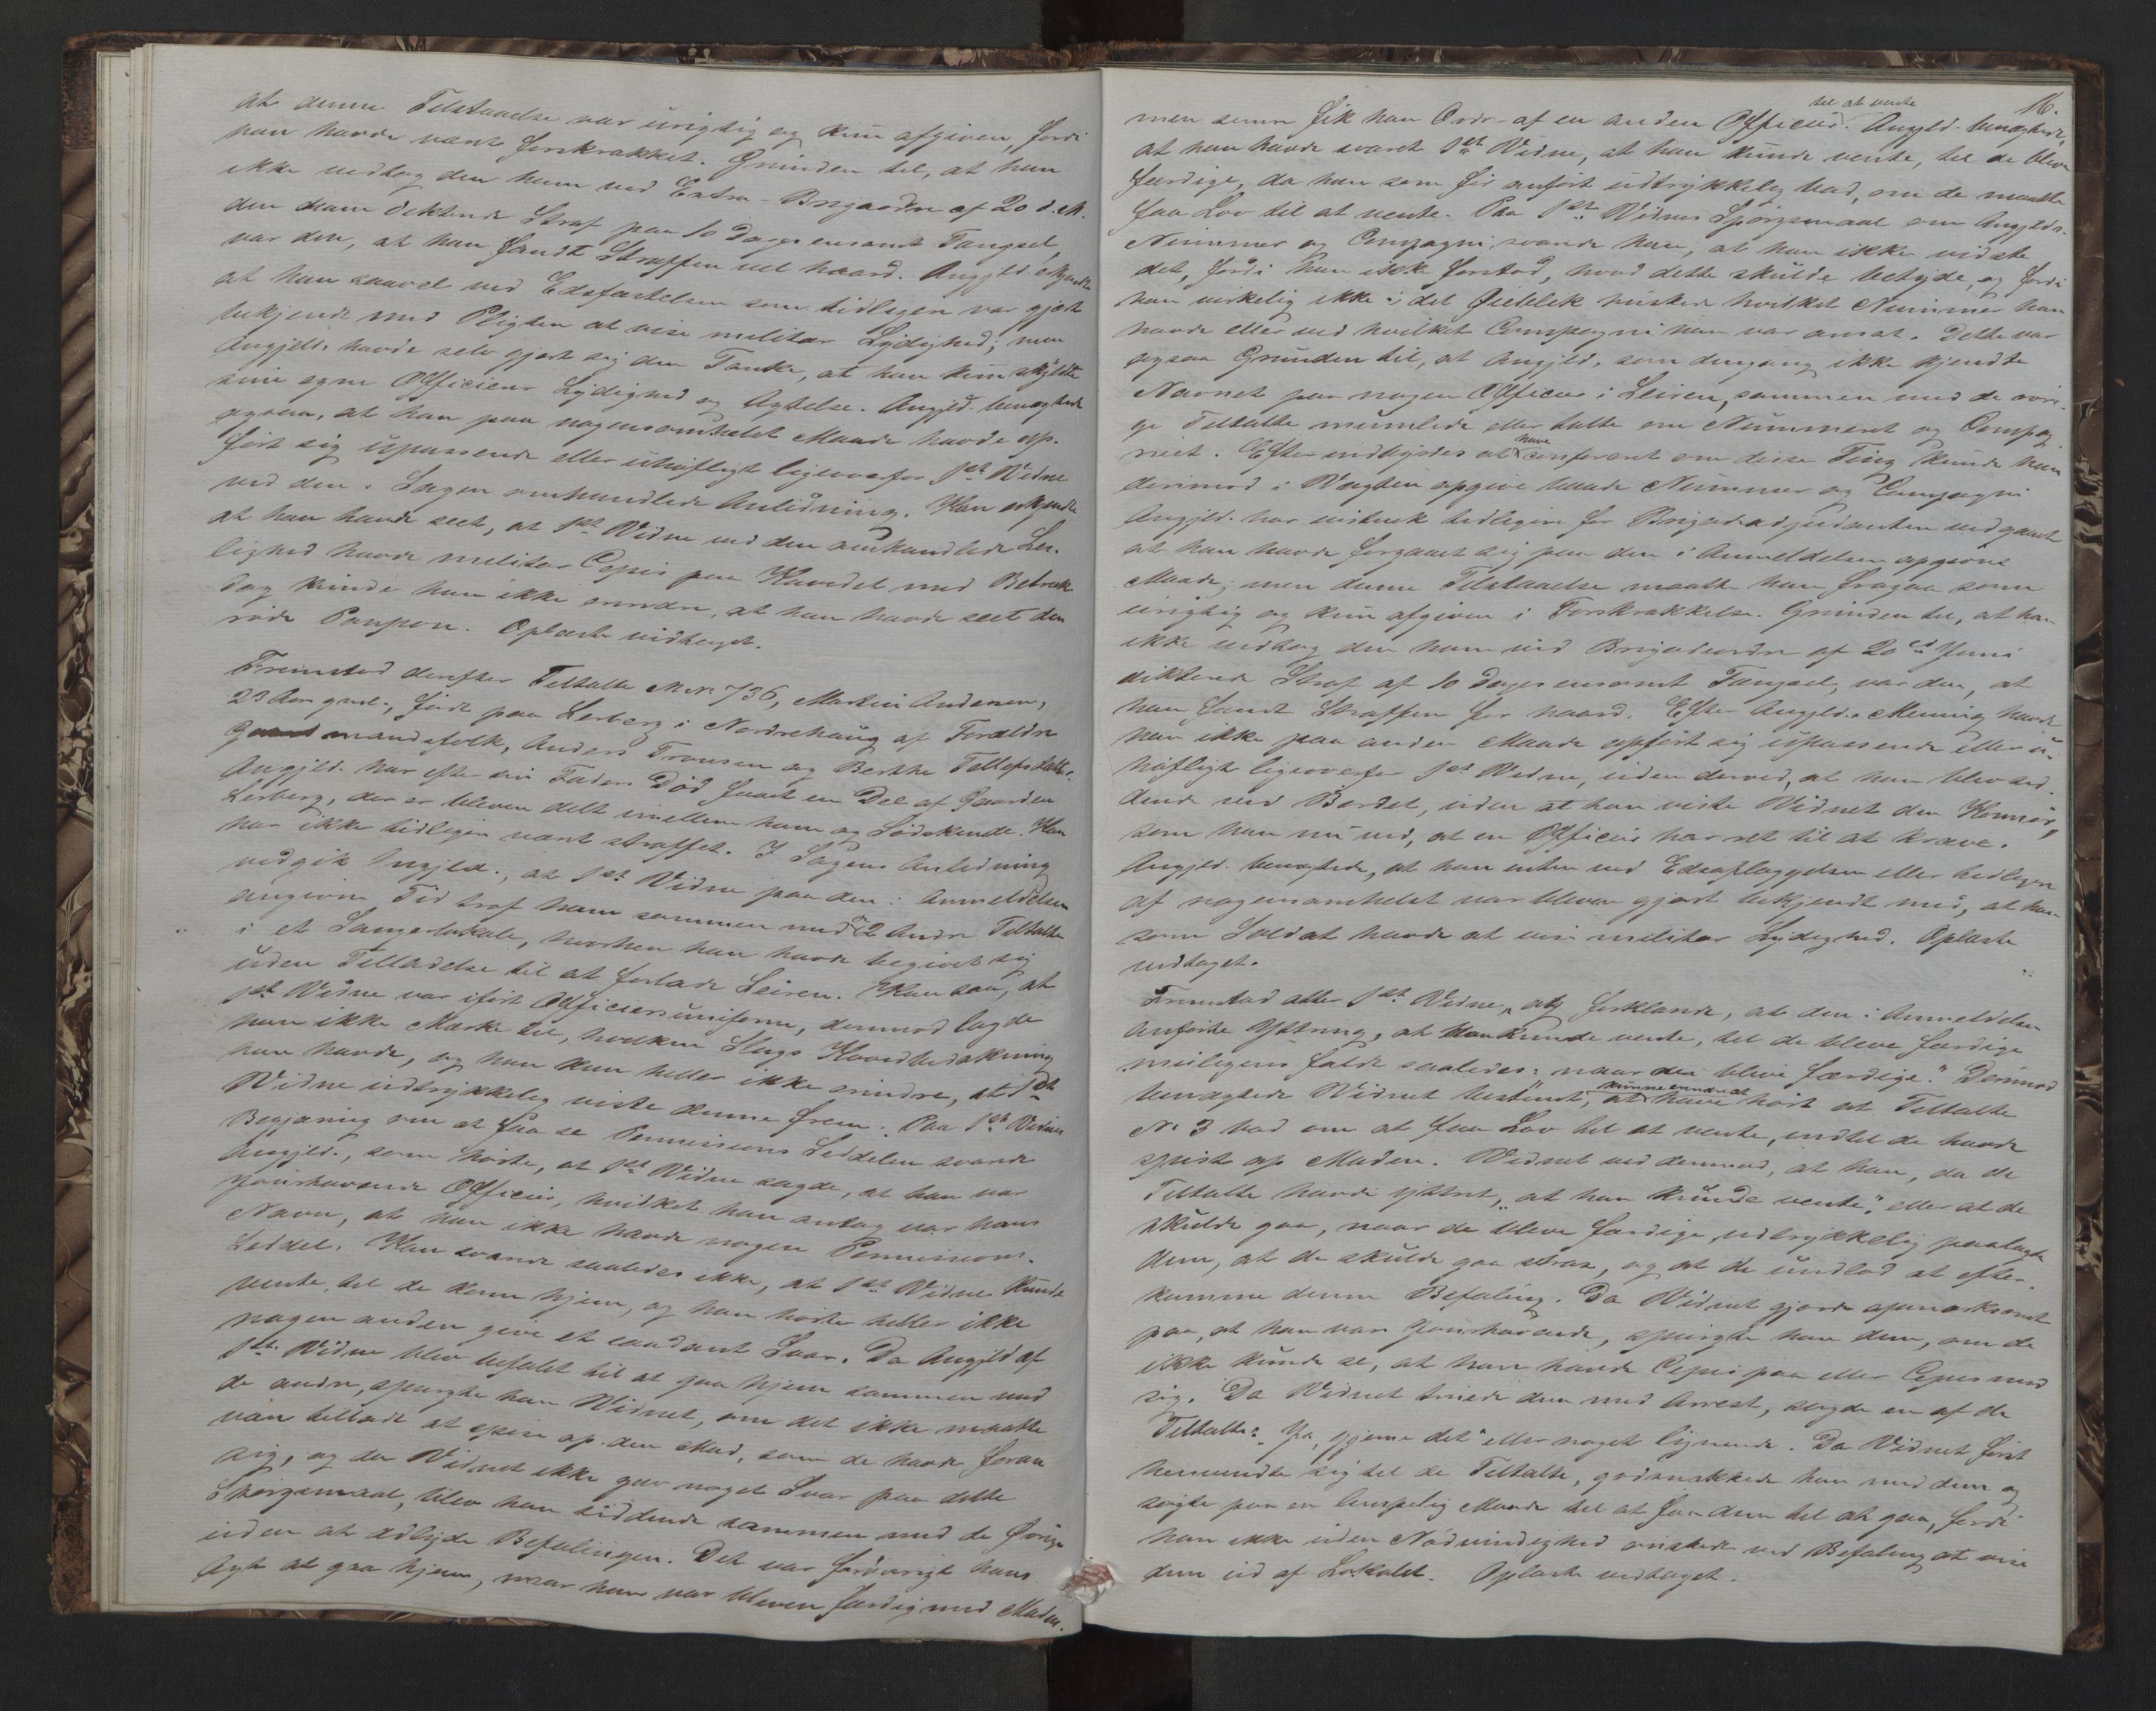 at denne Tilstaaelse var urigtig og kun afgiven, fordi
han havde været forskrækket. Grunden til, at han
ikke vedtog den ham ved Extra-Brigadordre af 20 d. M.
den ham dikterede Straf paa 10 Dages ensomt Fængsel,
var den, at han fandt Straffen vel haard. Angjeld. erkjendte
at han saavel ved Edsfæstelsen som tidligere var gjort
bekjendt med Pligten at vise militær Lydighed; men
Angjeld. havde selv gjort sig den Tanke, at han kun skyldte
sine egne Officierer Lydighed og Agtelse. Angjeld. benegtede
ogsaa, at han paa nogensomhelst Maade havde op-
ført sig upassende eller uhøfligt ligeoverfor 1st Vidne
ved den i Sagen omhandlede Anledning. Han erkjendte
at han havde seet, at 1st Vidne ved den omhandlede Lei-
lighed havde militær Cepis paa Hovedet med Betræk
dog kunde han ikke erindre, at han havde seet den
røde Pompon. Oplæste vedtaget.
Fremstod derefter Tiltalte M No 736, Martin Andersen,
23 Aar gml., født paa Lerberg i Nordrehaug af Forældre
Gaardmandsfolk, Anders Tronsen og Berthe Tollefsdatter.
Angjeld. har efter sin Faders Død faaet en Del af Gaarden
Lerberg, der er bleven delt imellem ham og Sødskende. Han
har ikke tidligere været straffet. I Sagens Anledning
vedgik Angjeld., at 1st Vidne paa den i Anmeldelsen
angivne Tid traf ham sammen med 2 Andre Tiltalte
i et Sangerlokale, hvorhen han havde begivet sig
uden Tilladelse til at forlade Leiren. Han saa, at
1st Vidne var iført Officiersuniform, derimod lagde
han ikke Mærke til, hvilken Slags Hovedbedækning
han havde, og han kan heller ikke erindre, at 1st
Vidne udtrykkelig viste denne frem. Paa 1st Vidnes
Begjæring om at faa se Permissions Seddelen svarede
Angjeld., som hørte, at 1st Vidne sagde, at han var
jourhavende Officier, hvilket han antog var hans
Navn, at han ikke havde nogen Permissions-
Seddel. Han svarede saaledes ikke, at 1st Vidne kunde
vente, til de kom hjem, og han hørte heller ikke
nogen anden give et saadant Svar. Da Angjeld af
1st Vidne blev befalet til at gaa hjem sammen med
de andre, spurgte han Vidnet, om det ikke maatte
være tilladt at spise op den Mad, som de havde foran
sig, og da Vidnet ikke gav noget Svar paa dette
Spørgsmaal, blev han siddende sammen med de Øvrige
uden at adlyde Befalingen. Det var forøvrigt hans
Agt at gaa hjem, naar han var bleven færdig med Maden.
16.
til at vente
men senere fik han Ordre af en anden Officier. Angjeld. benegtede,
at han havde svaret 1st Vidne, at han kunde vente, til de blev
færdige, da han som før anført udtrykkelig bad, om de maatte
faa Lov til at vente. Paa 1st Vidnes Spørgsmaal om Angjelds.
Nummer og Compagni svarede han, at han ikke vidste
det, fordi han ikke forstod, hvad dette skulde betyde, og fordi
han virkelig ikke i det Øieblik huskede hvilket Nummer han
havde eller ved hvilket Compagni han var ansat. Dette var
ogsaa Grunden til, at Angjeld. som dengang ikke kjendte
Navnet paa nogen Officier i Leiren, sammen med de øvri-
ge Tiltalte mumlede eller talte om Nummeret og Compag
have
niet. Efter indbyrdes at confereret om disse Ting kunde han
derimod i Vagten opgive baade Nummer og Compagni
Angjeld. har vistnok tidligere for Brigadeadjudanten vedgaaet
at han havde forgaaet sig paa den i Anmeldelsen opgivne
Maade; men denne Tilstaaelse maatte han fragaa som
urigtig og kun afgiven i Forskrækkelse. Grunden til, at han
ikke vedtog den ham ved Brigadeordre af 20de Juni
dikterede Straf af 10 Dages ensomt Fængsel, var den, at
han fandt Straffen for haard. Efter Angjelds. Mening havde
han ikke paa anden Maade opført sig upassende eller u-
høfligt ligeoverfor 1st Vidne, uden derved, at han blev sid-
dende ved Bordet, uden at han viste Vidnet den Honnør,
som han nu ved, at en Officier har ret til at kræve.
Angjeld. benegtede, at han enten ved Edsaflæggelsen eller tidligere
af nogensomhelst var bleven gjort bekjendt med, at han
som Soldat havde at vise militær Lydighed. Oplæste
vedtaget.
Fremstod atter 1st Vidne, og forklarede, at den i Anmeldelsen
anførte Yttring, at han kunde vente, til de bleve færdige
muligens faldt saaledes: naar de bleve færdige." Derimod
kunne erindre at
benegtede Vidnet bestemt, at have hørt at Tiltalte
No 3 bad om at faa Lov til at vente, indtil de havde
spist op Maden. Vidnet ved derimod, at han, da de
Tiltalte havde yttret, „at han kunde vente", eller at de
skulde gaa, naar de bleve færdige, udtrykkelig paalagde
dem, at de skulde gaa strax, og at de undlod at efter-
komme denne Befaling. Da Vidnet gjorde opmærksomt
paa, at han var jourhavende, spurgte han dem, om de
ikke kunde se, at han havde Cepis paa eller Cepis med
sig. Da Vidnet truede dem med Arrest, sagde en af de
Tiltalte: „Ja, gjerne det" eller noget lignende. Da Vidnet først
henvendte sig til de Tiltalte, godsnakkede han med dem og
søgte paa en lempelig Maade til at faa dem til at gaa, fordi
han ikke uden Nødvendighed ønskede ved Befaling at vise
dem ud af Lokalet. Oplæste vedtaget.